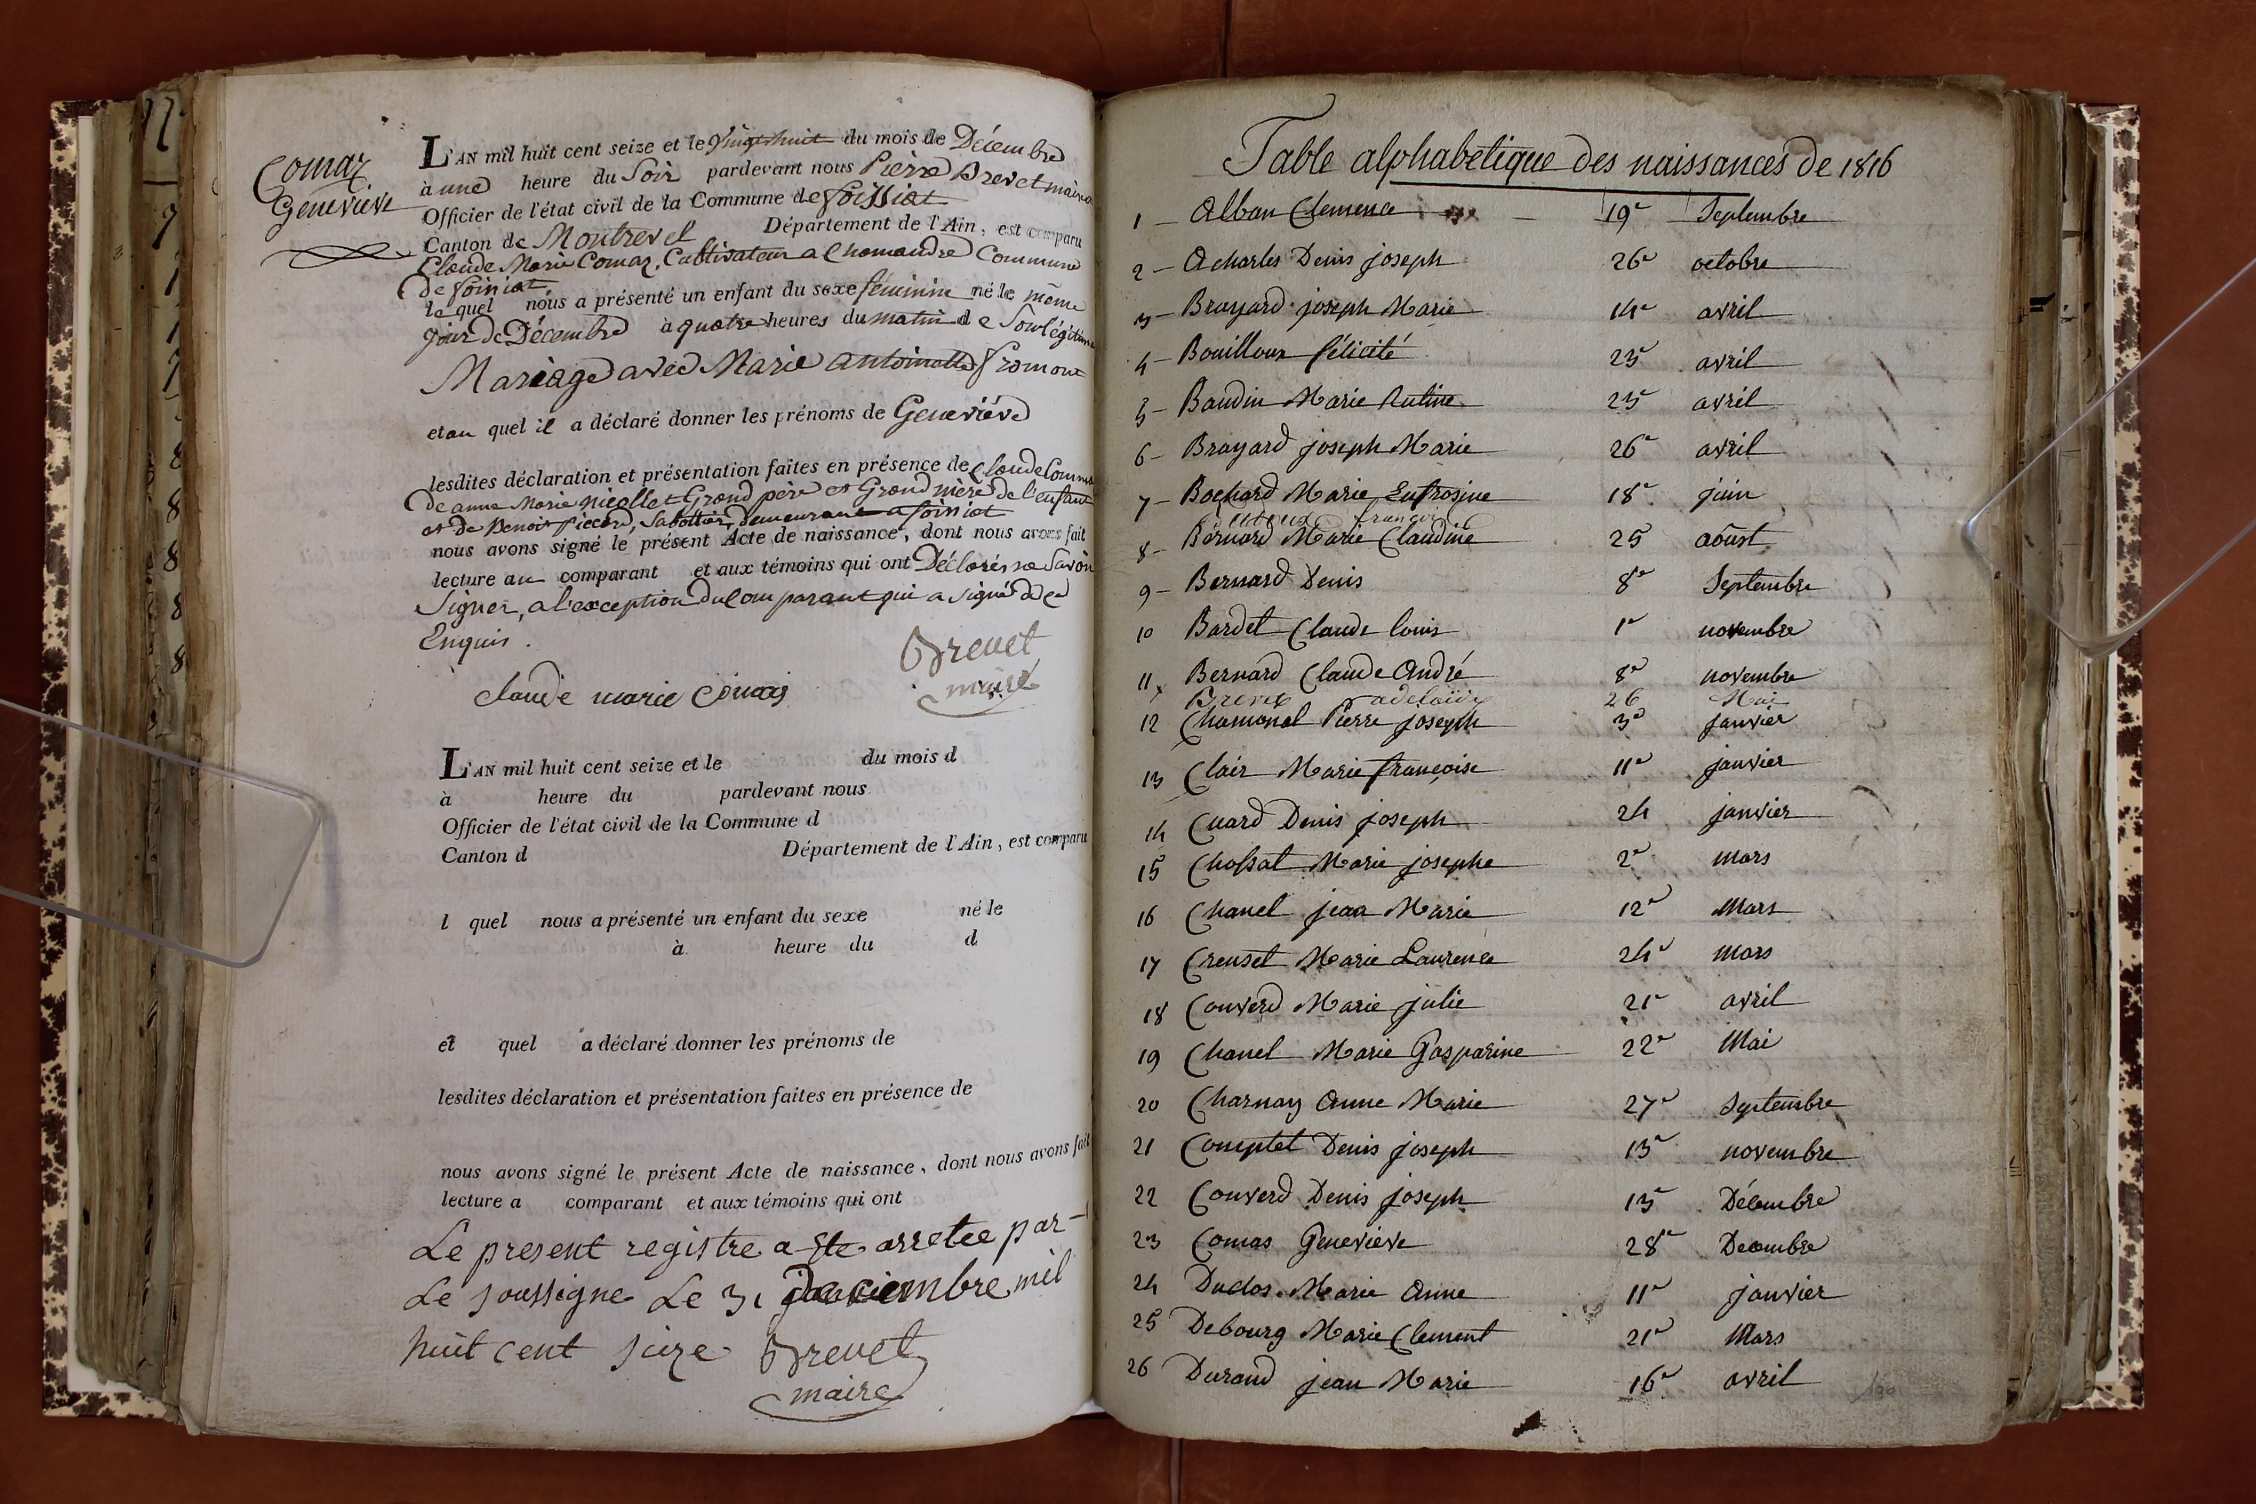 Comaz
Geneviève
L'AN mil huit cent seize et le vingt huit du mois de Décembre
à une heure du Soir pardevant nous Pierre Brevet maire
Officier de l'état civil de la Commune de foissiat
Canton de Montrevel Département de l'Ain, est comparu
Claude Marie Comaz, Cultivateur a Chomandre Commune
de foissiat,
le quel nous a présenté un enfant du sexe féminin né le même
jour de Décembre à quatre heures du matin de Son légitime
Mariage avec Marie antoinette fromont
et au quel il a déclaré donner les prénoms de Geneviève
lesdites déclaration et présentation faites en présence de Claude Comas
de anne Marie nicollet Grand père et Grand mère de l'enfant
et de Benoit piccard, Sabottier, demeurant a foissiat
nous avons signé le présent Acte de naissance, dont nous avons fait
lecture au comparant et aux témoins qui ont Déclarés ne Savoir
Signer, a l'exception du Comparant qui a signé de ce
Enquis.
Brevet
claude marie Comas maire
L'AN mil huit cent seize et le du mois d
à heure du pardevant nous
Officier de l'état civil de la Commune d
Canton d Département de l'Ain, est comparu
l quel nous a présenté un enfant du sexe né le
à heure du d
et quel a déclaré donner les prénoms de
lesdites déclaration et présentation faites en présence de
nous avons signé le présent Acte de naissance, dont nous avons fait
lecture a comparant et aux témoins qui ont
Le present registre a ete arretee par
Le soussigne Le 31 decembre mil
huit cent seize Brevet
maire
Table alphabetique des naissances de 1816
1 - Alban Clemence - 19e Septembre
2 - Acharles Denis joseph 26e octobre
3 - Brayard joseph Marie 14e avril
4 - Bouilloux félicité 23e avril
5 - Baudin Marie Rutine 23e avril
6 - Brayard joseph Marie 26e avril
7 - Bochard Marie Eufrosine 18e juin
françoi
8 - Bernard Marie Claudine 25 aôust
9 - Bernard Denis 8e Septembre
10 Bardet Claude louis 1er novembre
11 Bernard Claude André 8e novembre
x Brevet adelaïde 26 Mai
12 Chamonal Pierre joseph 3e janvier
13 Clair Marie françoise 11e janvier
14 Cuard Denis joseph 24 janvier
15 Chossat Marie josephe 2e mars
16 Chanel jean Marie 12e Mars
17 Creuset Marie Laurence 24e mars
18 Couverd Marie julie 21e avril
19 Chanel Marie Gasparine 22e Mai
20 Charnay Anne Marie 27e Septembre
21 Comptet Denis joseph 13e novembre
22 Couverd Denis joseph 13e Décembre
23 Comas Geneviève 28e Decembre
24 Duclos Marie Anne 11e janvier
25 Debourg Marie Clement 21e Mars
26 Durand jean Marie 16e avril